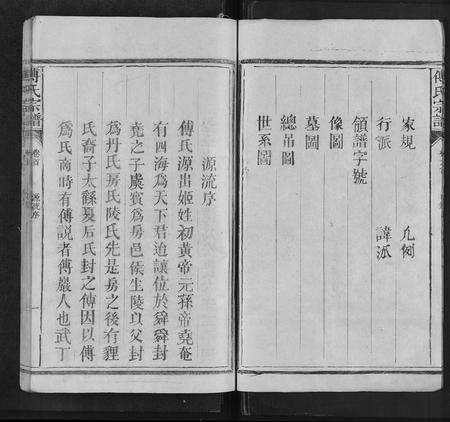 傅氏宗譜
家規　凡例
行派　諱派
領譜字號
像圖
墓圖
總吊圖
世系圖
源流序
傅氏源出姬姓初黃帝元孫帝堯奄
有四海爲天下君迨讓位於舜舜封
堯之子虞賓爲房邑侯生陵以父封
爲丹氏房氏陵氏先是房之後有貍
氏裔子太繇夏后氏封之傅因以傅
爲氏商時有傅説者傅巖人也武丁
傅氏宗譜
卷首
源流序
一